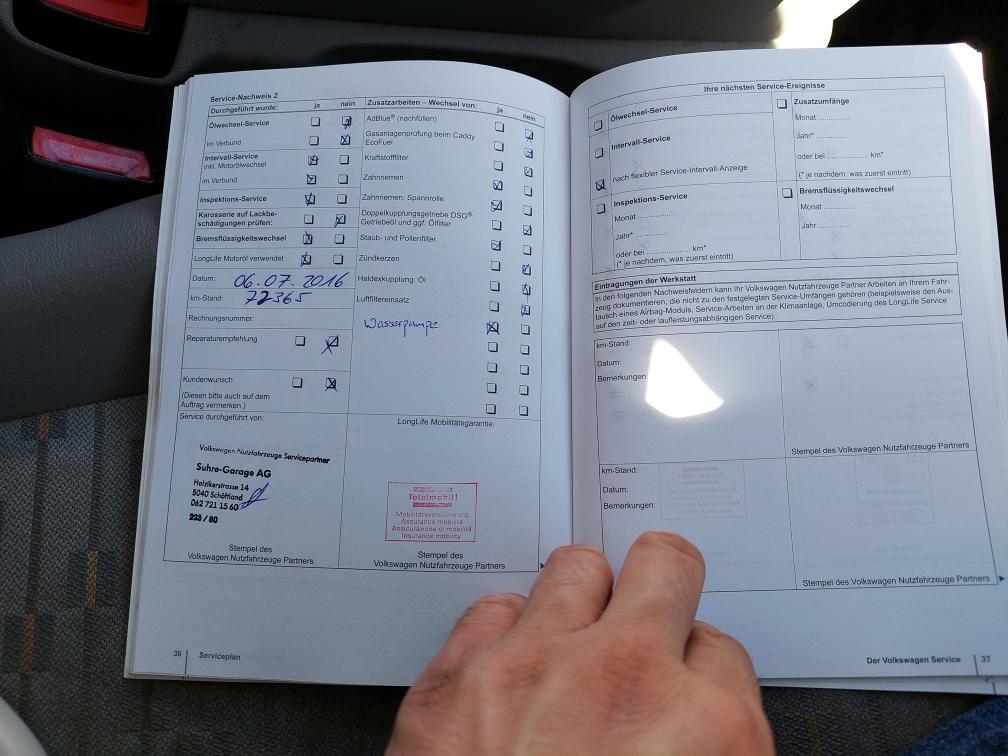 Service-Nachweis 2
Durchgeführt wurde: ja nein
Ölwechsel-Service
im Verbund
Intervall-Service
inkl. Motorölwechsel
im Verbund
Inspektions-Service
Karosserie auf Lackbe-
schädigungen prüfen:
Bremsflüssigkeitswechsel
LongLife Motoröl verwendet
Datum: 06.07.2016
km-Stand: 72365
Rechnungsnummer:
Reparaturempfehlung
Kundenwunsch
(Diesen bitte auch auf dem
Auftrag vermerken.)
Zusatzarbeiten – Wechsel von: ja nein
AdBlue® (nachfüllen)
Gasanlagenprüfung beim Caddy
EcoFuel
Kraftstofffilter
Zahnriemen
Zahnriemen: Spannrolle
Doppelkupplungsgetriebe DSG®
Getriebeöl und ggf. Ölfilter
Staub- und Pollenfilter
Zündkerzen
Haldexkupplung: Öl
Luftfiltereinsatz
Wasserpumpe
Service durchgeführt von:
Volkswagen Nutzfahrzeuge Servicepartner
Suhre-Garage AG
Holzikerstrasse 14
5040 Schöftland
062 721 15 60
223 / 80
Stempel des
Volkswagen Nutzfahrzeuge Partners
LongLife Mobilitätsgarantie:
Totalmobil!
Mobilitätsversicherung
Assurance mobilité
Assicurazione di mobilità
Insurance mobility
Stempel des
Volkswagen Nutzfahrzeuge Partners
36 Serviceplan
Ihre nächsten Service-Ereignisse
Ölwechsel-Service
Intervall-Service
nach flexibler Service-Intervall-Anzeige
Inspektions-Service
Monat ...........
Jahr* ...........
oder bei ............... km*
(* je nachdem, was zuerst eintritt)
Zusatzumfänge
Monat ...........
Jahr* ...........
oder bei ............... km*
(* je nachdem, was zuerst eintritt)
Bremsflüssigkeitswechsel
Monat ...........
Jahr ...........
Eintragungen der Werkstatt
In den folgenden Nachweisfeldern kann Ihr Volkswagen Nutzfahrzeuge Partner Arbeiten an Ihrem Fahr-
zeug dokumentieren, die nicht zu den festgelegten Service-Umfängen gehören (beispielsweise den Aus-
tausch eines Airbag-Moduls, Service-Arbeiten an der Klimaanlage, Umcodierung des LongLife Service
auf den zeit- oder laufleistungsabhängigen Service).
km-Stand:
Datum:
Bemerkungen:
Stempel des Volkswagen Nutzfahrzeuge Partners
km-Stand:
Datum:
Bemerkungen:
Stempel des Volkswagen Nutzfahrzeuge Partners
Der Volkswagen Service 37